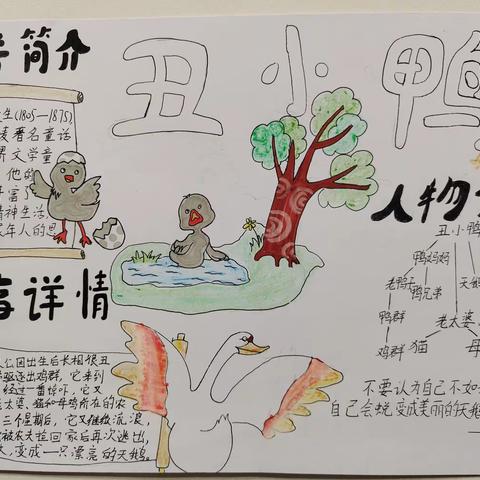 简介
丑小鸭
生(1805—1875)
著名童话
文学童
他的
富了
精神生活
年人的
人物
丑小鸭
鸭妈妈
老鸭子
鸭兄弟
天鹅
鸭群
老太婆
鸡群
猫
母
详情
出生后长相很丑
逐出鸡群，它来到
经过一番惊吓，它又
太婆、猫和母鸡所在的农
三个星期后，它又继续流浪，
被农夫捡回家后再次逃出，
变成一只漂亮的天鹅。
不要认为自己不如
自己会蜕变成美丽的天鹅